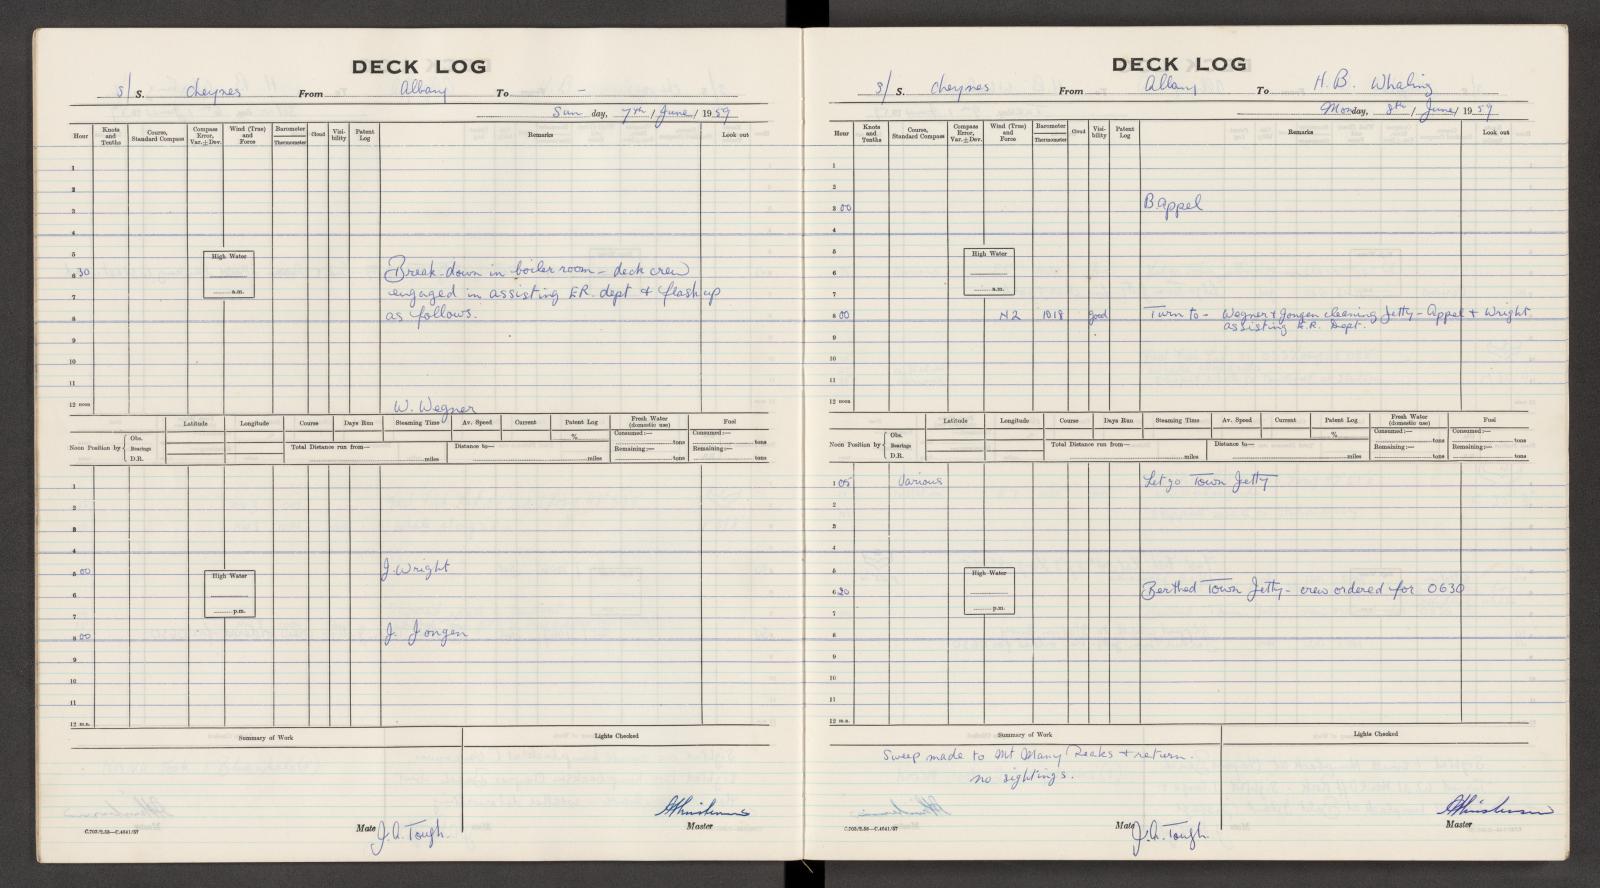 DECK LOG
S/ S. Cheynes From Albany To -
Sun day, 7th / June / 1959
Hour Knots and Tenths Course, Standard Compass Compass Error, Var. ± Dev. Wind (True) and Force Barometer Thermometer Cloud Visibility Patent Log Remarks Look out
1
2
3
4
5
High Water
6 30 Break-down in boiler room - deck crew
a.m.
7 engaged in assisting E.R. dept & flash up
8 as follows.
9
10
11
12 noon W. Wegner
Noon Position by Obs. Bearings D.R. Latitude Longitude Course Days Run Steaming Time Av. Speed Current Patent Log % Fresh Water (domestic use) Fuel
Consumed:— tons Consumed:— tons
Total Distance run from— miles Distance to— miles Remaining:— tons Remaining:— tons
1
2
3
4
5 00 J. Wright
High Water
6
p.m.
7
8 00 J. Jongen
9
10
11
12 m.n.
Summary of Work Lights Checked
C.703/2.58—C.4641/57 Mate J.A. Tough. Master
DECK LOG
S/ S. Cheynes From Albany To H.B. Whaling
Monday, 8th / June / 1959
Hour Knots and Tenths Course, Standard Compass Compass Error, Var. ± Dev. Wind (True) and Force Barometer Thermometer Cloud Visibility Patent Log Remarks Look out
1
2
3 00 B Appel
4
5
High Water
6
a.m.
7
8 00 N2 1018 good Turn to - Wegner & Jongen cleaning Jetty - Appel & Wright
assisting E.R. Dept.
9
10
11
12 noon
Noon Position by Obs. Bearings D.R. Latitude Longitude Course Days Run Steaming Time Av. Speed Current Patent Log % Fresh Water (domestic use) Fuel
Consumed:— tons Consumed:— tons
Total Distance run from— miles Distance to— miles Remaining:— tons Remaining:— tons
1 05 Various Let go Town Jetty
2
3
4
5
High Water
6 20 Berthed Town Jetty - crew ordered for 0630
p.m.
7
8
9
10
11
12 m.n.
Summary of Work Lights Checked
Sweep made to Mt Many Peaks & return.
no sightings.
C.703/2.58—C.4641/57 Mate J.A. Tough. Master